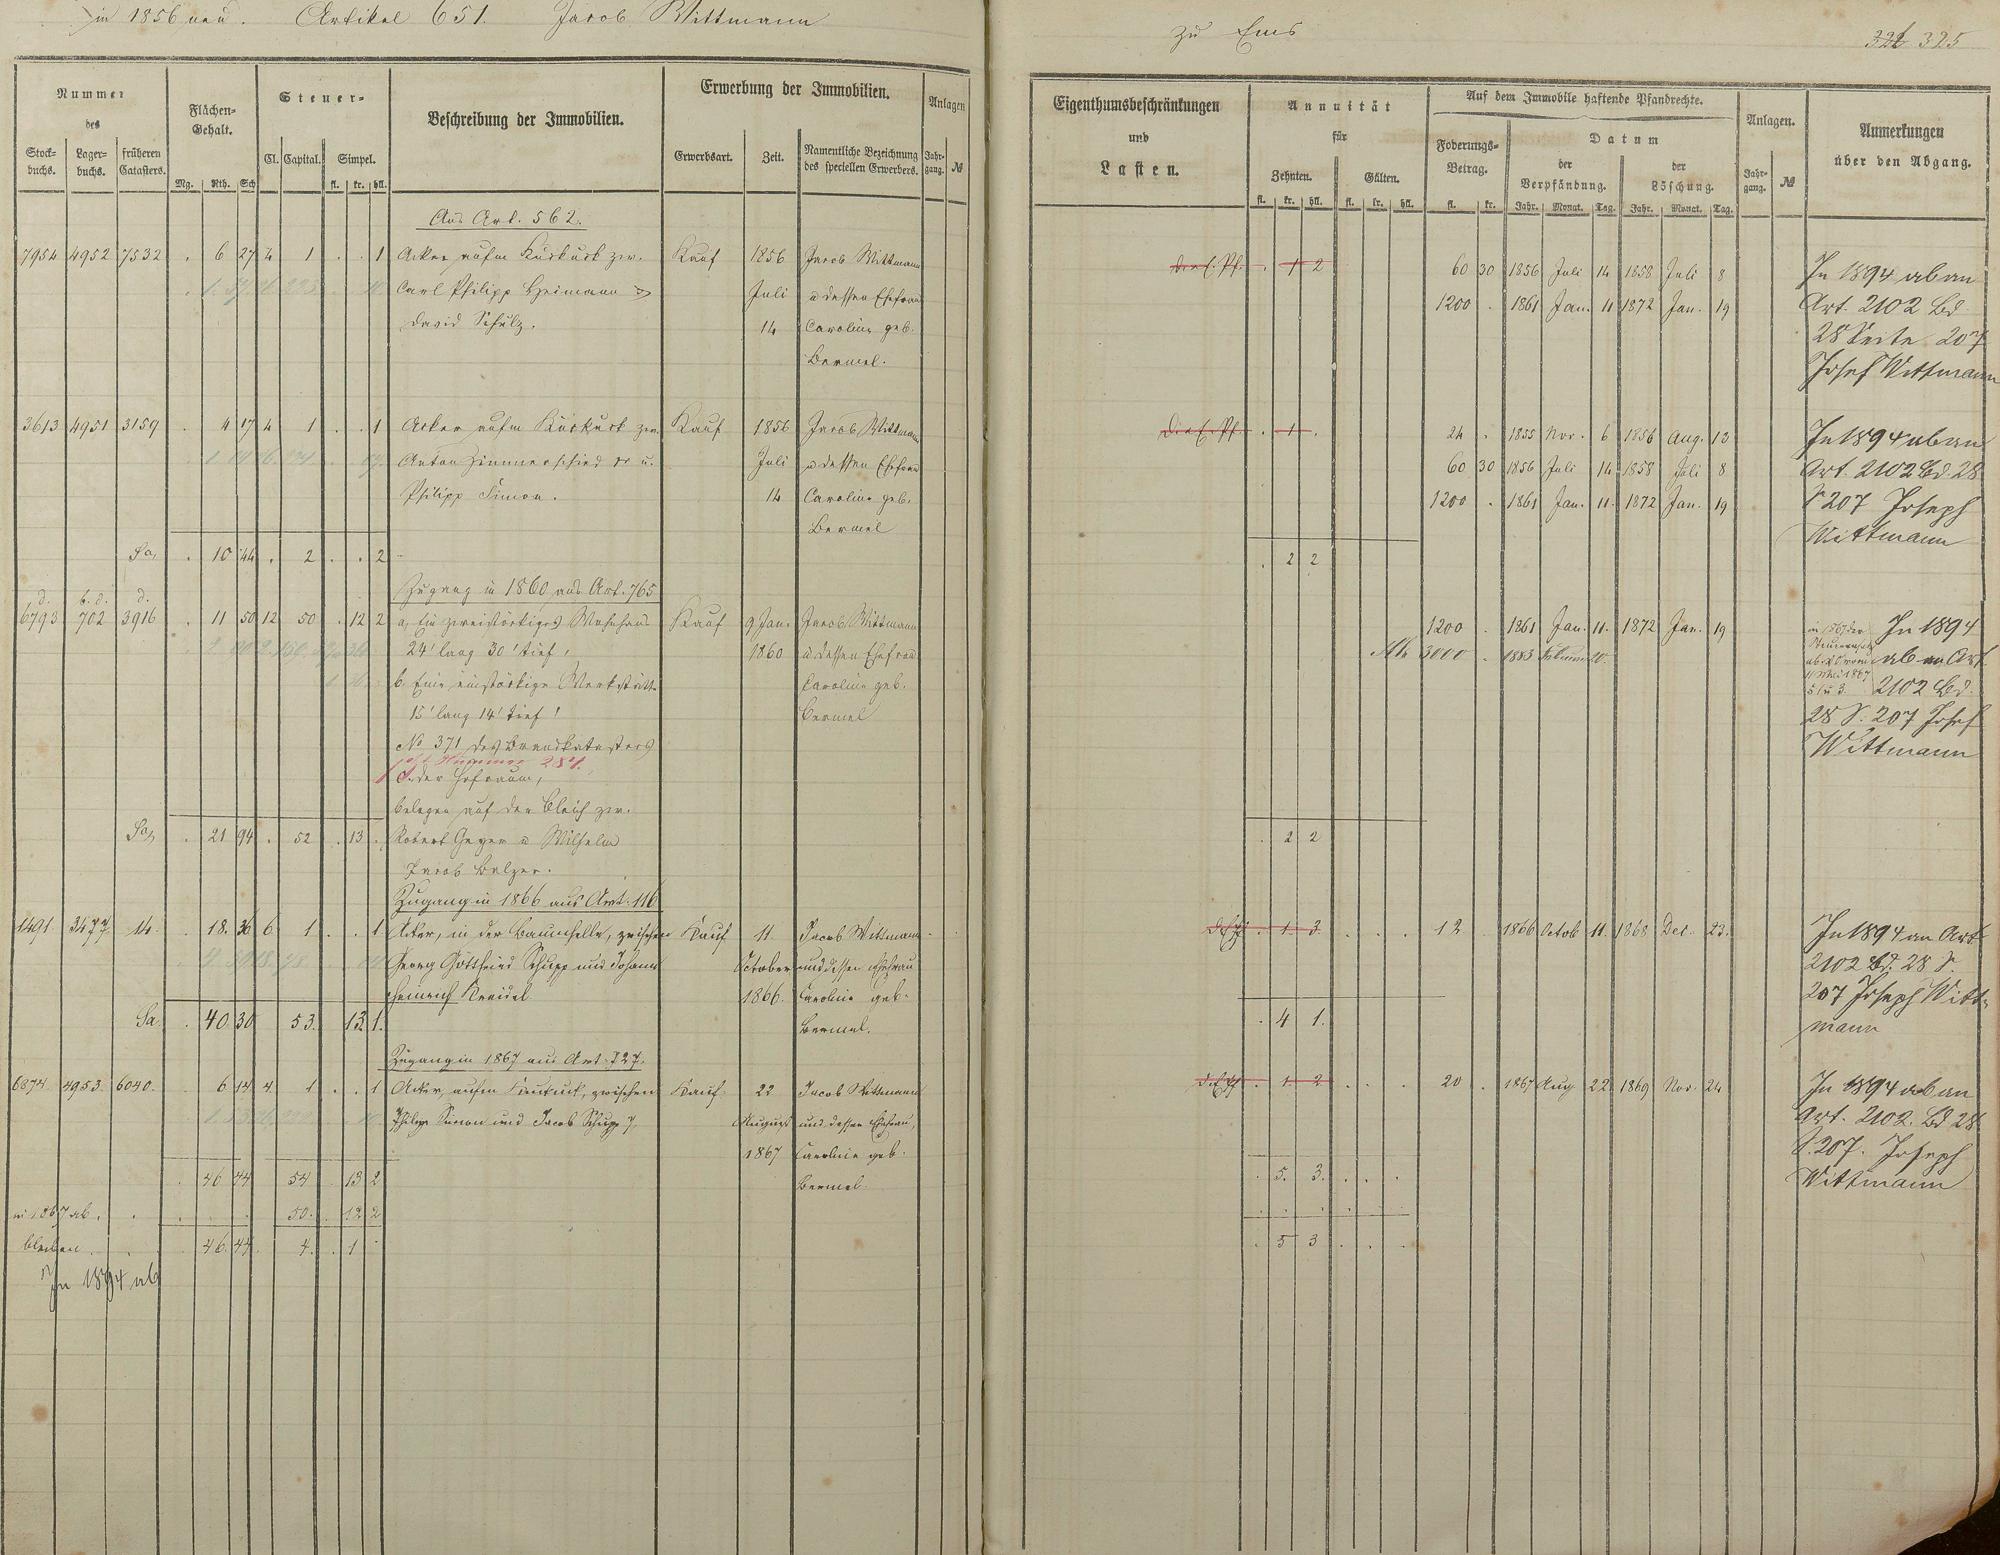 in 1856 neu. Artikel 651. Jacob Wittmann
Nummer des
Stock-buchs. Lager-buchs. früheren Catasters.
Flächen-Gehalt.
Mg. Rth. Sch
Steuer-
Cl. Capital. Simpel.
fl. kr. hll.
Beschreibung der Immobilien.
Erwerbung der Immobilien.
Erwerbsart. Zeit. Namentliche Bezeichnung des speciellen Erwerbers.
Anlagen
Jahr-gang. №
Aus Art. 562.
7954 4952 7532 . 6 27 4 1 . . 1 Acker aufm Kukuck zw. Kauf 1856 Jacob Wittmann
Carl Philipp Heimann Juli u dessen Ehefrau
David Schulz. 14 Caroline geb.
Bermel.
3613 4951 3159 . 4 17 4 1 . . 1 Acker aufm Kuckuck zw. Kauf 1856 Jacob Wittmann
Anton Zimmerschied u. Juli u dessen Ehefrau
Philipp Simon. 14 Caroline geb.
Bermel
Sa. . 10 44 . 2 . . 2
Zugang in 1860 aus Art. 765
d. b. d. d.
6793 702 3916 . 11 50 12 50 . 12 2 a, Ein zweistöckiges Wohnhaus Kauf 9 Jan. Jacob Wittmann
24' lang 30' tief, 1860 u dessen Ehefrau
b. Eine einstöckige Werkstätte Caroline geb.
15' lang 14' tief! Bermel
No 371 des Brandkatasters
jetzt Nummer 284.
c. der Hofraum,
belegen auf der Bleich zw.
Sa. . 21 94 . 52 . 13 . Robert Geyer u Wilhelm
Jacob Balzer.
Zugang in 1866 aus Art. 116
1491 3477 14 . 18. 36 6 1 . . 1 Acker, in der Baumhelle, zwischen Kauf 11 Jacob Wittmann
Georg Gottfried Schupp und Johann October und dessen Ehefrau
Heinrich Kreidel 1866. Caroline geb.
Sa . 40 30 53. 13 1. Bermel.
Zugang in 1867 aus Art. 727.
6874 4953 6040 . 6 14 4 1 . . 1 Acker, aufm Kukuck, zwischen Kauf 22 Jacob Wittmann
Philipp Simon und Jacob Schupp 7, August und dessen Ehefrau,
1867 Caroline geb.
. 46 44 54 . 13 2 Bermel
in 1867 ab. . . . 50. . 12 2
bleiben . . 46. 44 4. . 1 -
In 1894 ab
zu Ems
322 325
Eigenthumsbeschränkungen und Lasten.
Annuität für
Zehnten. Gülten.
fl. kr. hll. fl. kr. hll.
Auf dem Immobile haftende Pfandrechte.
Foderungs-Betrag.
fl. kr.
Datum
der Verpfändung. der Löschung.
Jahr. Monat. Tag. Jahr. Monat. Tag.
Anlagen.
Jahr-gang. №
Anmerkungen über den Abgang.
. 1 2 60 30 1856 Juli 14 1858 Juli 8 In 1894 ab an
1200 . 1861 Jan. 11 1872 Jan. 19 Art. 2102 Bd.
28 Seite 207
Josef Wittmann
. 1 . 24 . 1855 Nov. 6 1856 Aug. 13 In 1894 ab an
60 30 1856 Juli 14 1858 Juli 8 Art. 2102 Bd. 28
1200 . 1861 Jan. 11. 1872 Jan. 19 S 207 Joseph
Wittmann
. 2 2
1200 . 1861 Jan. 11. 1872 Jan. 19 In 1894
3000 . 1883 10. ab an Art.
2102 Bd.
28 S. 207 Josef
Wittmann
. 2 2
. 1 3 . . . 12 . 1866 Octob 11. 1868 Dec. 23. In 1894 an Art
2102 Bd. 28 S.
207 Joseph Witt-
. 4 1. mann
. 1 2 . . . 20 . 1867 Aug 22 1869 Nov. 24 In 1894 ab an
Art. 2102. Bd 28
S. 207. Joseph
. 5. 3. . . . Wittmann
. 5 3 . . .